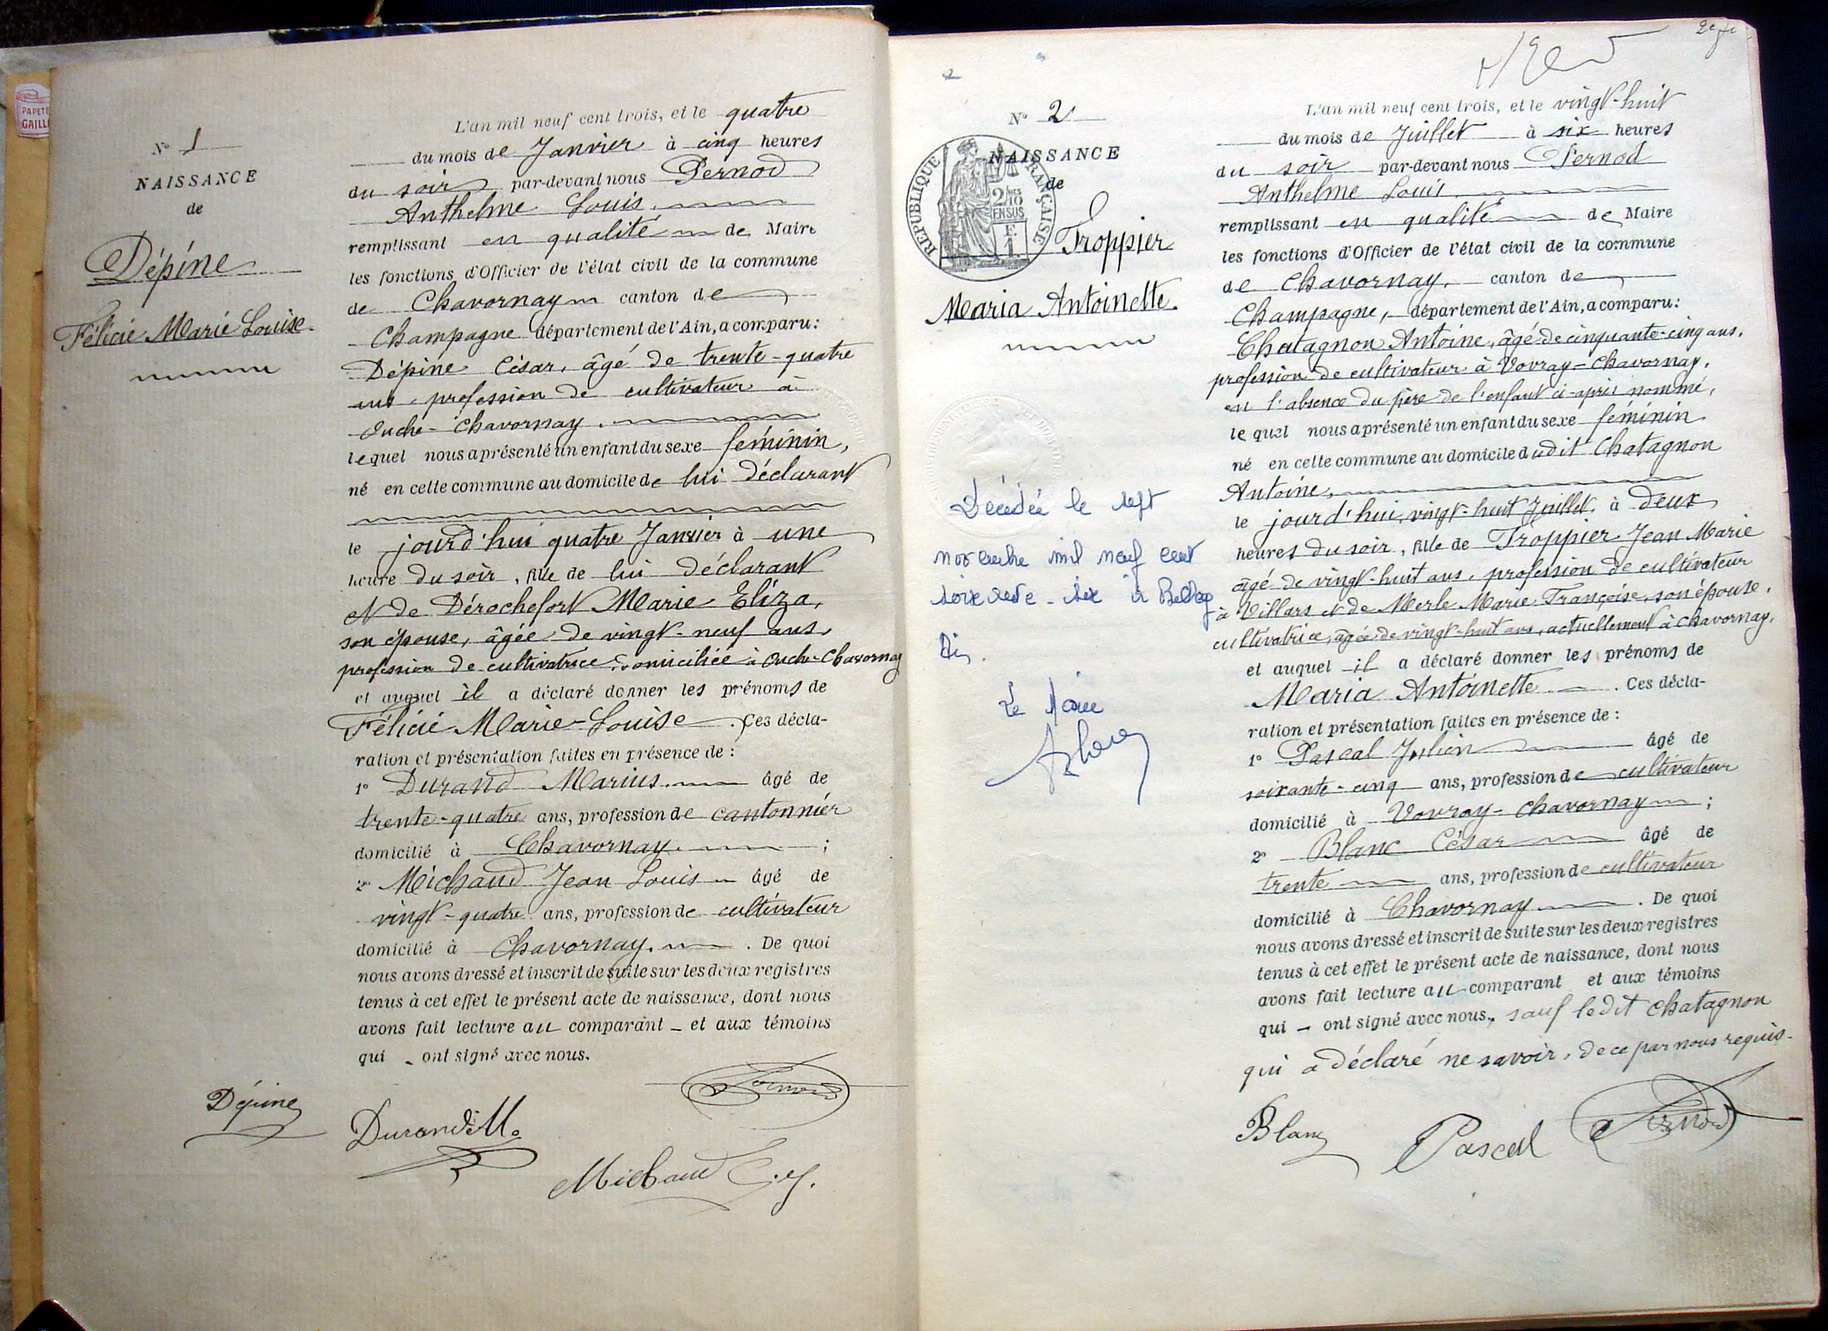 PAPETE
GAILL
N° 1
NAISSANCE
de
Dépine
Félicie Marie Louise.
L'an mil neuf cent trois, et le quatre
du mois de Janvier à cinq heures
du soir par-devant nous Pernod
Anthelme Louis,
remplissant en qualité de Maire
les fonctions d'Officier de l'état civil de la commune
de Chavornay canton de
Champagne département de l'Ain, a comparu:
Dépine César, âgé de trente-quatre
ans, profession de cultivateur à
Ouche-Chavornay.
lequel nous a présenté un enfant du sexe féminin,
né en cette commune au domicile de lui déclarant
le jourd'hui quatre Janvier à une
heure du soir, fille de lui déclarant
et de Dérochefort Marie Eliza,
son épouse, âgée de vingt-neuf ans,
profession de cultivatrice domiciliée à Ouche-Chavornay
et auquel il a déclaré donner les prénoms de
Félicie Marie-Louise. Ces décla-
ration et présentation faites en présence de :
1° Durand Marius. âgé de
trente-quatre ans, profession de cantonnier
domicilié à Chavornay. ;
2° Michaud Jean Louis âgé de
vingt-quatre ans, profession de cultivateur
domicilié à Chavornay. . De quoi
nous avons dressé et inscrit de suite sur les deux registres
tenus à cet effet le présent acte de naissance, dont nous
avons fait lecture au comparant et aux témoins
qui ont signé avec nous.
Dépine
Pernod
Durand M.
Michaud
2
N° 2
NAISSANCE
de
REPUBLIQUE FRANÇAISE
2/10
EN SUS
E.
1
Troppier
Maria Antoinette.
Décédée le sept
novembre mil neuf cent
soixante-six à Belley
Ain.
Le Maire
L'an mil neuf cent trois, et le vingt-huit
du mois de Juillet à six heures
du soir par-devant nous Pernod
Anthelme Louis,
remplissant en qualité de Maire
les fonctions d'Officier de l'état civil de la commune
de Chavornay, canton de
Champagne, département de l'Ain, a comparu:
Chatagnon Antoine, âgé de cinquante-cinq ans,
profession de cultivateur à Vovray-Chavornay,
en l'absence du père de l'enfant ci-après nommé,
lequel nous a présenté un enfant du sexe féminin
né en cette commune au domicile dudit Chatagnon
Antoine,
le jourd'hui, vingt-huit Juillet, à deux
heures du soir, fille de Troppier Jean Marie
âgé de vingt-huit ans, profession de cultivateur
à Villars et de Merle Marie Françoise, son épouse,
cultivatrice, âgée de vingt-huit ans, actuellement à Chavornay,
et auquel il a déclaré donner les prénoms de
Maria Antoinette . Ces décla-
ration et présentation faites en présence de :
1° Pascal Julien âgé de
soixante-cinq ans, profession de cultivateur
domicilié à Vovray-Chavornay ;
2° Blanc César âgé de
trente ans, profession de cultivateur
domicilié à Chavornay . De quoi
nous avons dressé et inscrit de suite sur les deux registres
tenus à cet effet le présent acte de naissance, dont nous
avons fait lecture au comparant et aux témoins
qui ont signé avec nous, sauf ledit Chatagnon
qui a déclaré ne savoir, de ce par nous requis.
Blanc
Pascal
Pernod